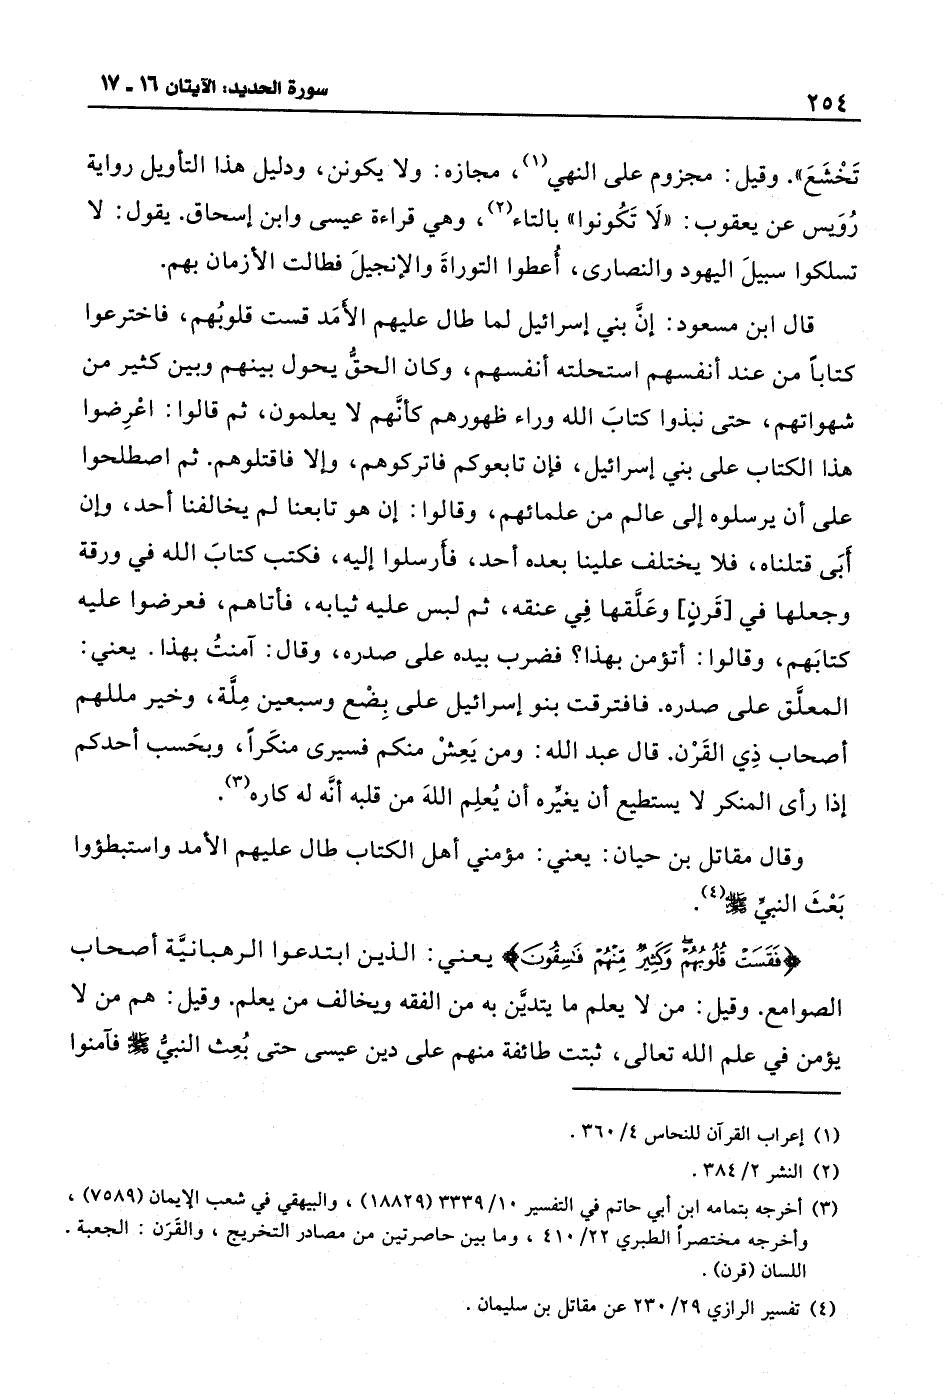 ٢٥٤
سورة الحديد: الآيتان ١٦ - ١٧
تَخْشَعَ». وقيل: مجزوم على النهي(١)، مجازه: ولا يكونن، ودليل هذا التأويل رواية
رُوَيس عن يعقوب: «لَا تَكُونوا» بالتاء(٢)، وهي قراءة عيسى وابن إسحاق. يقول: لا
تسلكوا سبيلَ اليهود والنصارى، أُعطوا التوراةَ والإنجيلَ فطالت الأزمان بهم.
قال ابن مسعود: إنَّ بني إسرائيل لما طال عليهم الأَمَد قست قلوبُهم، فاخترعوا
كتاباً من عند أنفسهم استحلته أنفسهم، وكان الحقُّ يحول بينهم وبين كثير من
شهواتهم، حتى نبذوا كتابَ الله وراء ظهورهم كأنَّهم لا يعلمون، ثم قالوا: اعْرِضوا
هذا الكتاب على بني إسرائيل، فإن تابعوكم فاتركوهم، وإلا فاقتلوهم. ثم اصطلحوا
على أن يرسلوه إلى عالم من علمائهم، وقالوا: إن هو تابعنا لم يخالفنا أحد، وإن
أَبَى قتلناه، فلا يختلف علينا بعده أحد، فأرسلوا إليه، فكتب كتابَ الله في ورقة
وجعلها في [قَرنٍ] وعَلَّقها فِي عنقه، ثم لبس عليه ثيابه، فأتاهم، فعرضوا عليه
كتابَهم، وقالوا: أتؤمن بهذا؟ فضرب بيده على صدره، وقال: آمنتُ بهذا. يعني:
المعلَّق على صدره. فافترقت بنو إسرائيل على بِضْع وسبعين مِلَّة، وخير مللهم
أصحاب ذِي القَرْن. قال عبد الله: ومن يَعِشْ منكم فسيرى منكَراً، وبحَسب أحدكم
إذا رأى المنكر لا يستطيع أن يغيِّره أن يُعلِم اللهَ من قلبه أنَّه له كاره(٣).
وقال مقاتل بن حيان: يعني: مؤمني أهل الكتاب طال عليهم الأمد واستبطؤوا
بَعْثَ النبيِّ ﷺ(٤).
﴿فَقَسَتْ قُلُوبُهُمْ وَكَثِيرٌ مِّنْهُمْ فَسِقُونَ﴾ يعني: الذين ابتدعوا الرهبانيَّة أصحاب
الصوامع. وقيل: من لا يعلم ما يتديَّن به من الفقه ويخالف من يعلم. وقيل: هم من لا
يؤمن في علم الله تعالى، ثبتت طائفة منهم على دين عيسى حتى بُعِث النبيُّ ﷺ فآمنوا
(١) إعراب القرآن للنحاس ٤/ ٣٦٠ .
(٢) النشر ٢/ ٣٨٤ .
(٣) أخرجه بتمامه ابن أبي حاتم في التفسير ١٠/ ٣٣٣٩ (١٨٨٢٩) ، والبيهقي في شعب الإيمان (٧٥٨٩) ،
وأخرجه مختصراً الطبري ٢٢/ ٤١٠ ، وما بين حاصرتين من مصادر التخريج ، والقَرَن : الجعبة .
اللسان (قرن) .
(٤) تفسير الرازي ٢٩/ ٢٣٠ عن مقاتل بن سليمان .